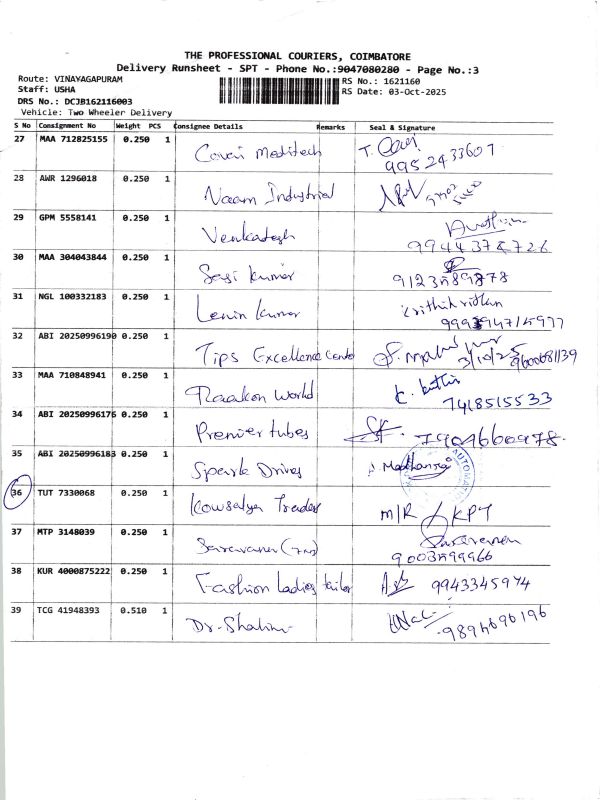 THE PROFESSIONAL COURIERS, COIMBATORE
Delivery Runsheet - SPT - Phone No.:9047080280 - Page No.:3
Route: VINAYAGAPURAM
RS No.: 1621160
Staff: USHA
RS Date: 03-Oct-2025
DRS No.: DCJB162116003
Vehicle: Two Wheeler Delivery
S No Consignment No Weight PCS Consignee Details Remarks Seal & Signature
27 MAA 712825155 0.250 1 Caveri Meditech T. 9952433607
28 AWR 1296018 0.250 1 Naam Industrial
29 GPM 5558141 0.250 1 Venkatesh 9944378726
30 MAA 304043844 0.250 1 Sasi Kumar 9123589878
31 NGL 100332183 0.250 1 Lenin Kumar Krithikridhan
32 ABI 20250996190 0.250 1 Tips Excellence Center 3/10/25 9600681139
33 MAA 710848941 0.250 1 Raakon World 7418515533
34 ABI 20250996176 0.250 1 Premier tubes 7904660978
35 ABI 20250996183 0.250 1 Spark Drives
36 TUT 7330068 0.250 1 Kowsalya Traders M/R KPY
37 MTP 3148039 0.250 1 Saravanan Saravanan 9003599966
38 KUR 4000875222 0.250 1 Fashion Ladies tailor 9943345974
39 TCG 41948393 0.510 1 Dr. Shalini 9894690196